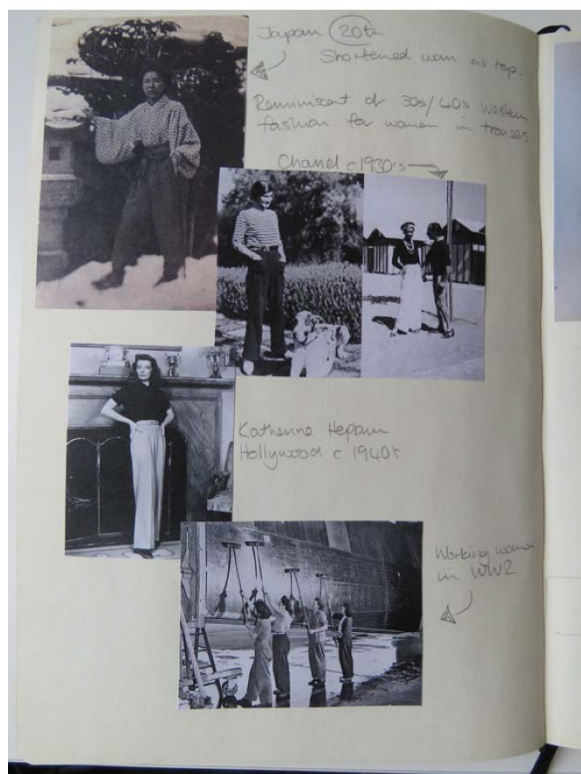 Japan 20th
Shortened worn as top.
Reminiscent of 30s/40s Western
fashion for women in trousers
Chanel c1930's
Katherine Hepburn
Hollywood c 1940's
Working women
in WW2